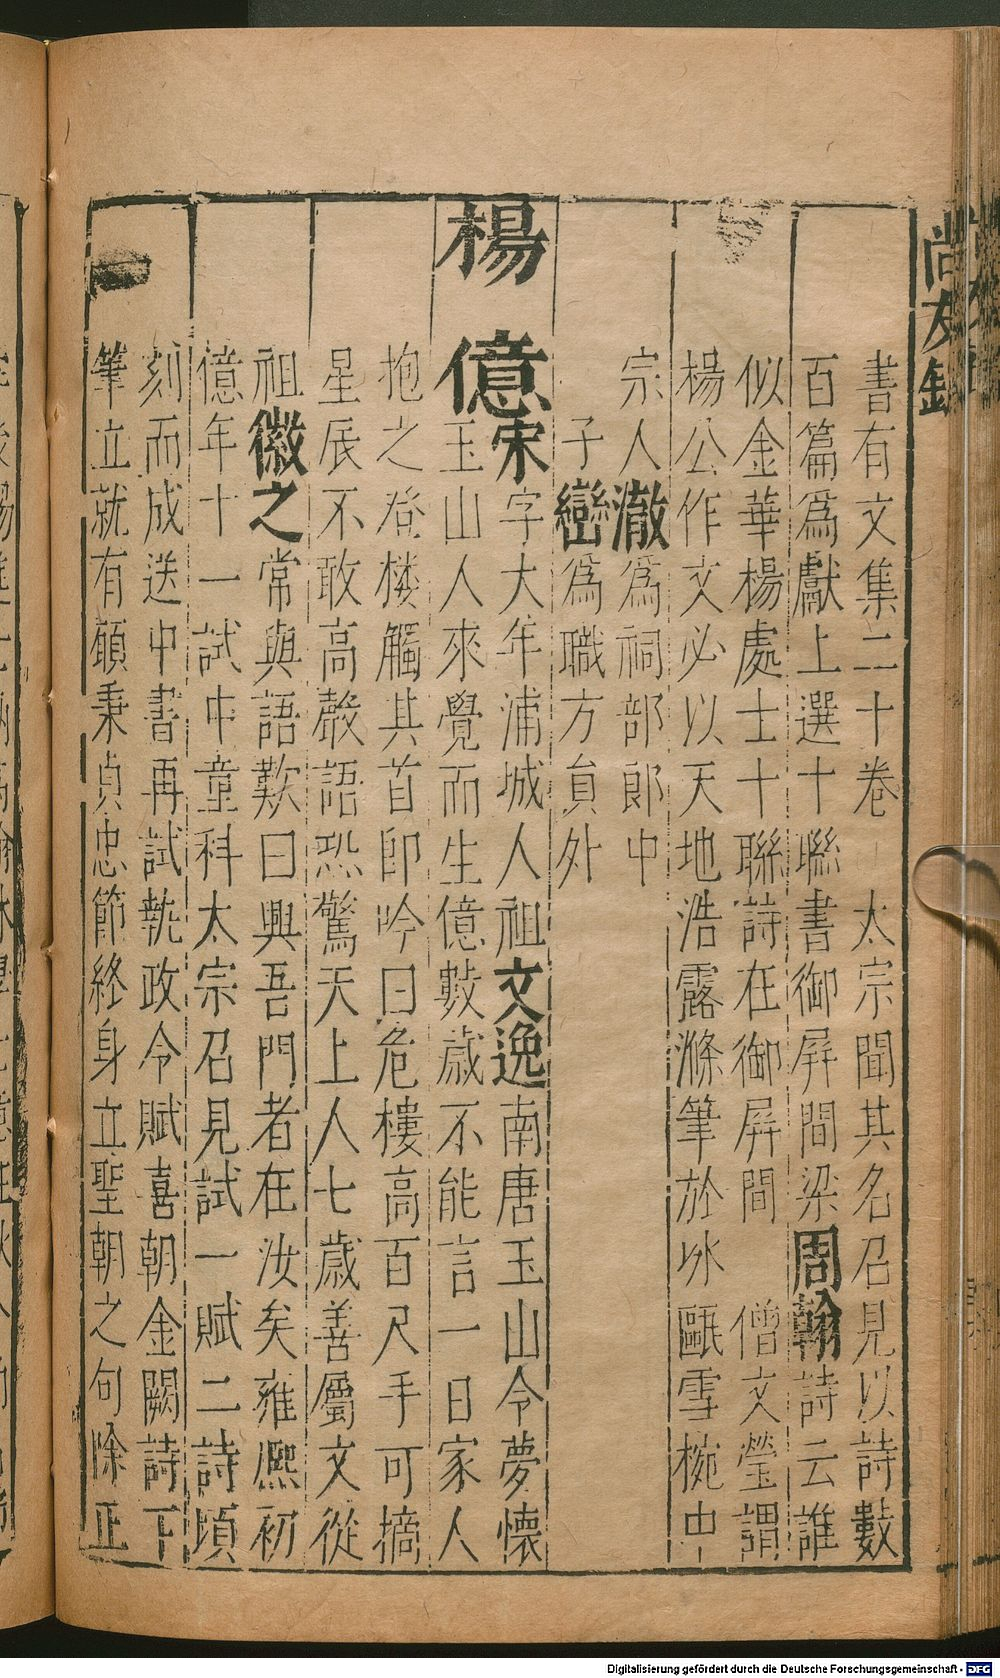 尚友錄
書有文集二十卷　太宗聞其名召見以詩數
百篇爲獻上選十聯書御屛間梁周翰詩云誰
似金華楊處士十聯詩在御屛間　僧文瑩謂
楊公作文必以天地浩露滌筆於氷甌雪椀中
宗人澈爲祠部郎中
子巒爲職方員外
楊億宋字大年浦城人祖文逸南唐玉山令夢懷
玉山人來覺而生億數歲不能言一日家人
抱之登楼觸其首卽吟曰危樓高百尺手可摘
星辰不敢高聲語恐驚天上人七歲善屬文從
祖徽之常與語歎曰興吾門者在汝矣雍熙初
億年十一試中童科太宗召見試一賦二詩頃
刻而成送中書再試執政令賦喜朝金闕詩下
筆立就有願秉貞忠節終身立聖朝之句除正
Digitalisierung gefördert durch die Deutsche Forschungsgemeinschaft - DFG